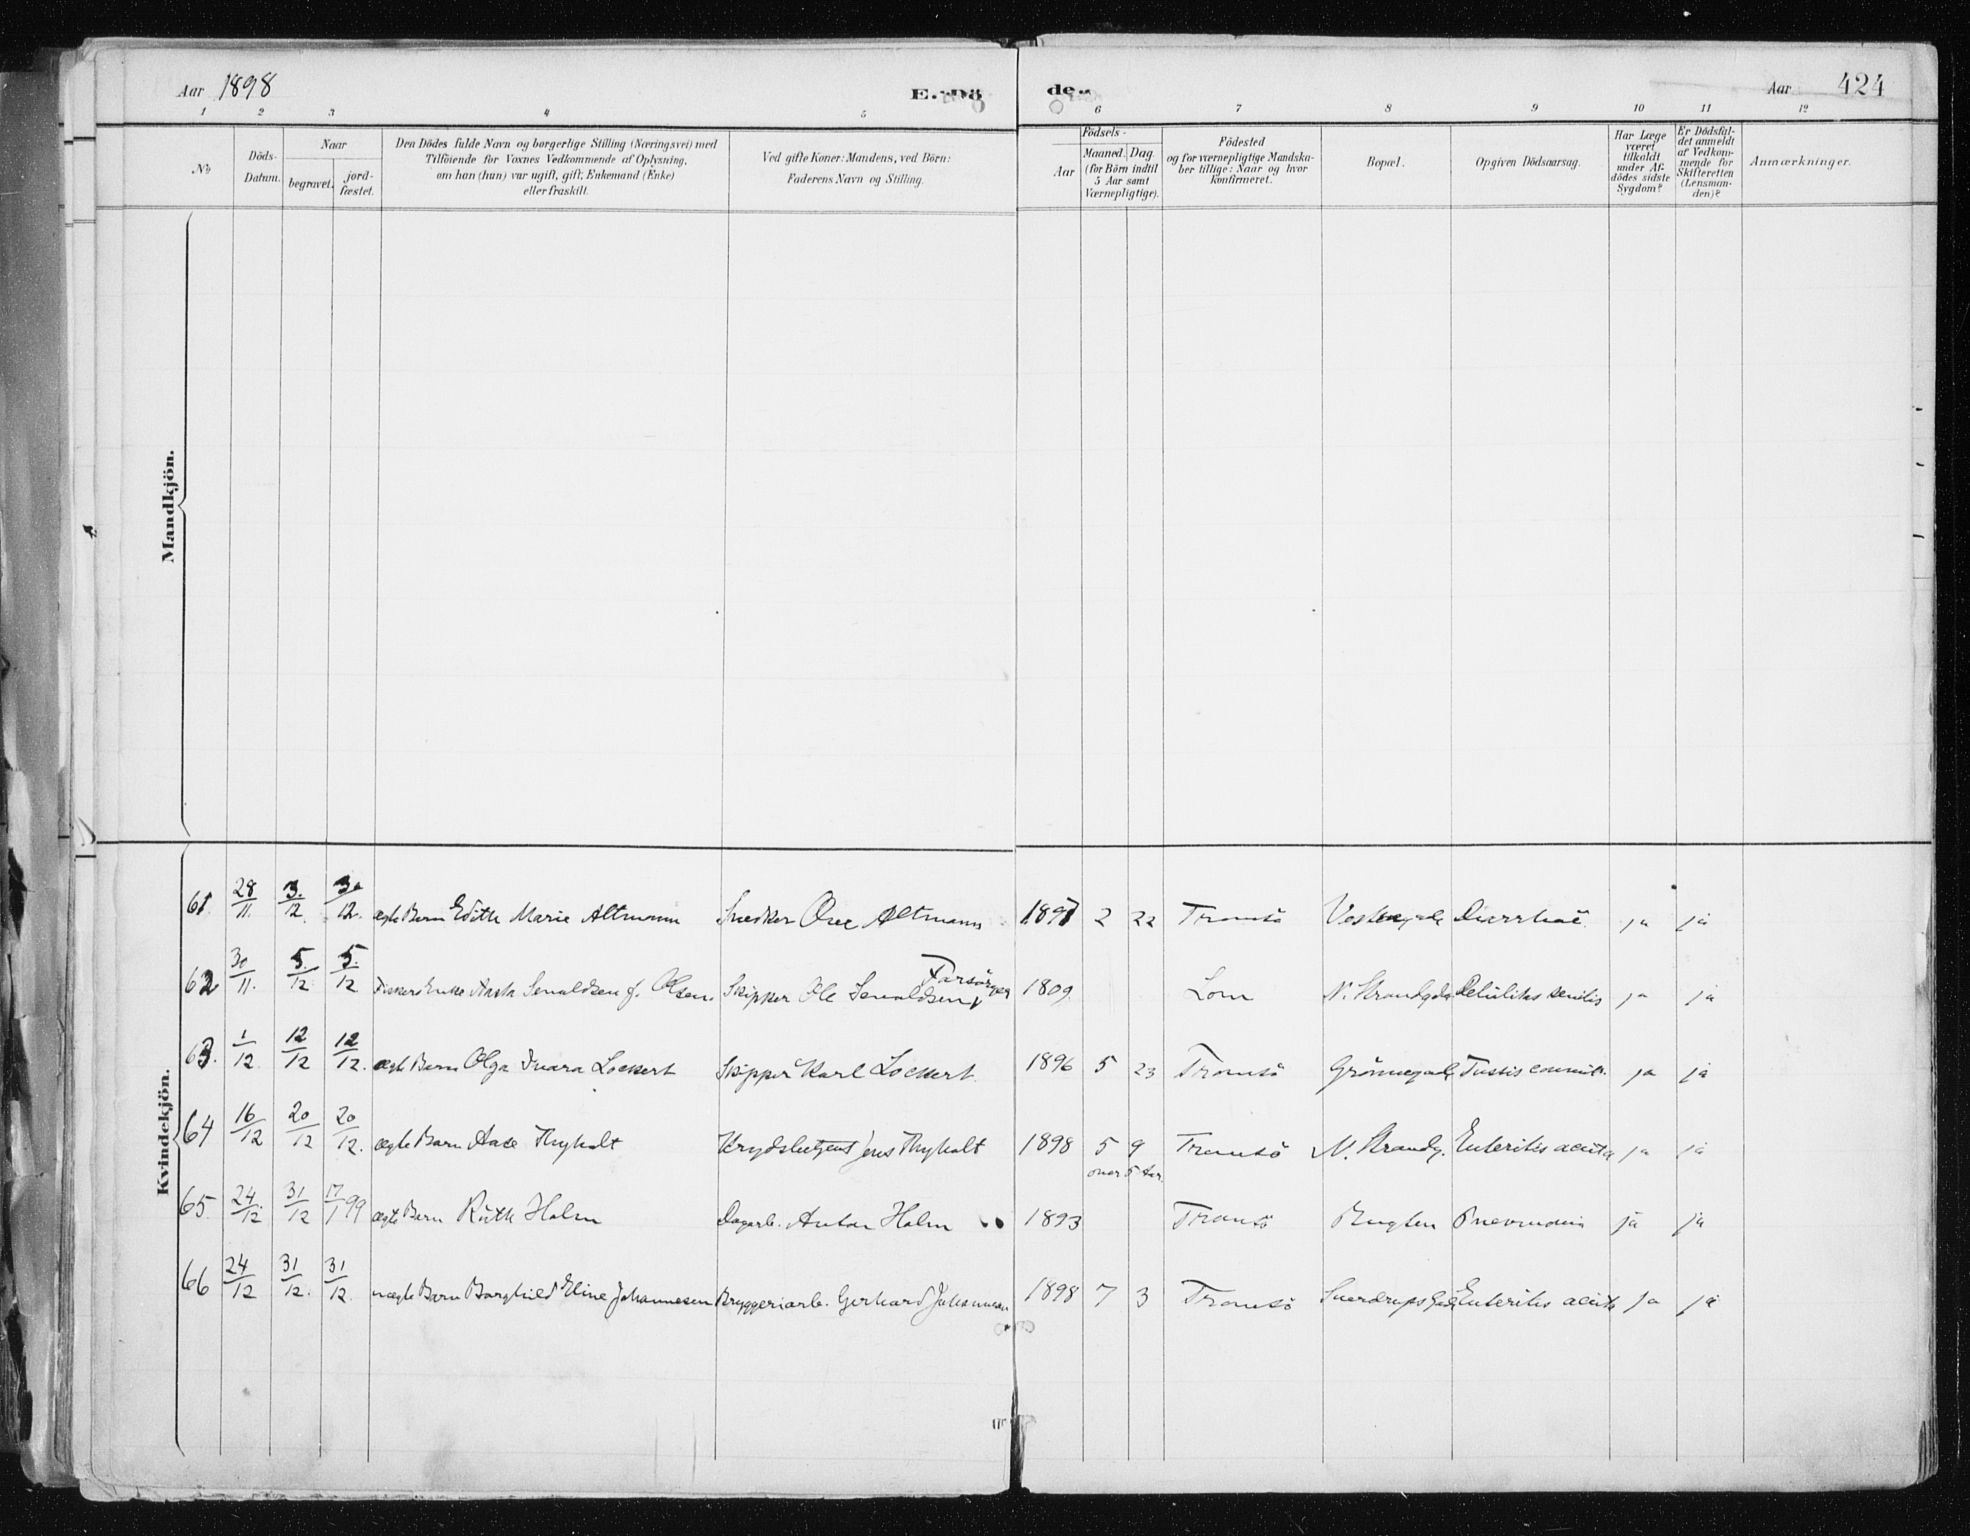 Aar 1898 E. Dö de. Aar 424
1 2 3 4 5 6 7 8 9 10 11 12
No
Döds-Datum.
Naar
begravet.
jordfæstet.
Den Dödes fulde Navn og borgerlige Stilling (Næringsvei) med
Tilföiende for Voxnes Vedkommende af Oplysning,
om han (hun) var ugift, gift, Enkemand (Enke)
eller fraskilt.
Ved gifte Koner: Mandens, ved Börn:
Faderens Navn og Stilling.
Födsels-
Aar
Maaned. Dag
(for Börn indtil
5 Aar samt
Værnepligtige).
Födested
og for værnepligtige Mandska-
ber tillige: Naar og hvor
Konfirmeret.
Bopæl.
Opgiven Dödsaarsag.
Har Læge
været
tilkaldt
under Af-
dödes sidste
Sygdom?
Er Dödsfal-
det anmeldt
af Vedkom-
mende for
Skifteretten
(Lensman-
den)?
Anmærkninger.
Mandkjön.
Kvindekjön.
61. 28/11. 3./12. 30/12. ægte Barn Edith Marie Altmann Snedker Altmann 1897 2 22 Tromsö Diarrhoë ja ja
62 30/11. 5./12 5./12 Enke Olsen. Skipper Ole 1809. Lom N. Strandgd. Debilitas senilis ja ja
63. 1/12. 12/12 12/12. ægte Barn Olga Lockert Skipper Karl Lockert. 1896 5 23 Tromsö Grönnegade Tussis convuls. ja ja
64 16/12 20/12 20/12. ægte Barn Aase Thyholt Jens Thyholt 1898 5 9 Tromsö N. Strandg. Enteritis acuta ja ja
over 5 Aar.
65 24/12. 31/12 17/1 99 ægte Barn Ruth Holm Dagarb. Anton Holm 1893 Tromsö Bugten Pneumoni ja ja
66 24/12 31/12. 31/12. uægte Barn Borghild Eline Johannesen Bryggeriarb. Gerhard Johannesen 1898 7 3 Tromsö Sverdrups Gade Enteritis acuta ja ja